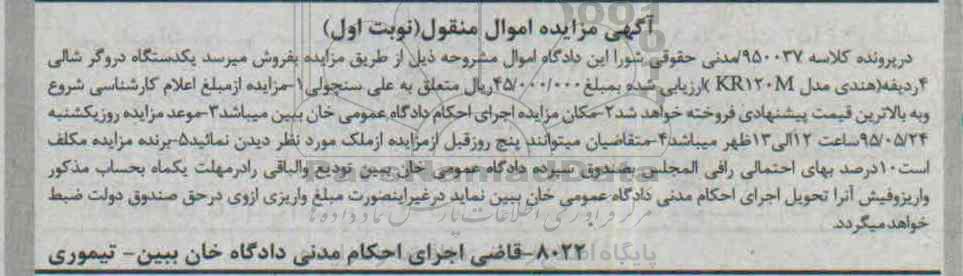 آگهی مزایده اموال منقول(نوبت اول)
درپرونده کلاسه ۹۵۰۰۳۷/مدنی حقوقی شورا این دادگاه اموال مشروحه ذیل از طریق مزایده بفروش میرسد یکدستگاه دروگر شالی
۴ردیفه(هندی مدل KR۱۲۰M )ارزیابی شده بمبلغ ۴۵/۰۰۰/۰۰۰ریال متعلق به علی سنچولی۱-مزایده ازمبلغ اعلام کارشناسی شروع
وبه بالاترین قیمت پیشنهادی فروخته خواهد شد۲-مکان مزایده اجرای احکام دادگاه عمومی خان ببین میباشد۳-موعد مزایده روزیکشنبه
۹۵/۰۵/۲۴ساعت ۱۲الی۱۳ظهر میباشد۴-متقاضیان میتوانند پنج روزقبل ازمزایده ازملک مورد نظر دیدن نمائید۵-برنده مزایده مکلف
است۱۰درصد بهای احتمالی رافی المجلس بصندوق سپرده دادگاه عمومی خان ببین تودیع والباقی رادرمهلت یکماه بحساب مذکور
واریزوفیش آنرا تحویل اجرای احکام مدنی دادگاه عمومی خان ببین نماید درغیراینصورت مبلغ واریزی ازوی درحق صندوق دولت ضبط
خواهدمیگردد.
۸۰۲۲-قاضی اجرای احکام مدنی دادگاه خان ببین- تیموری